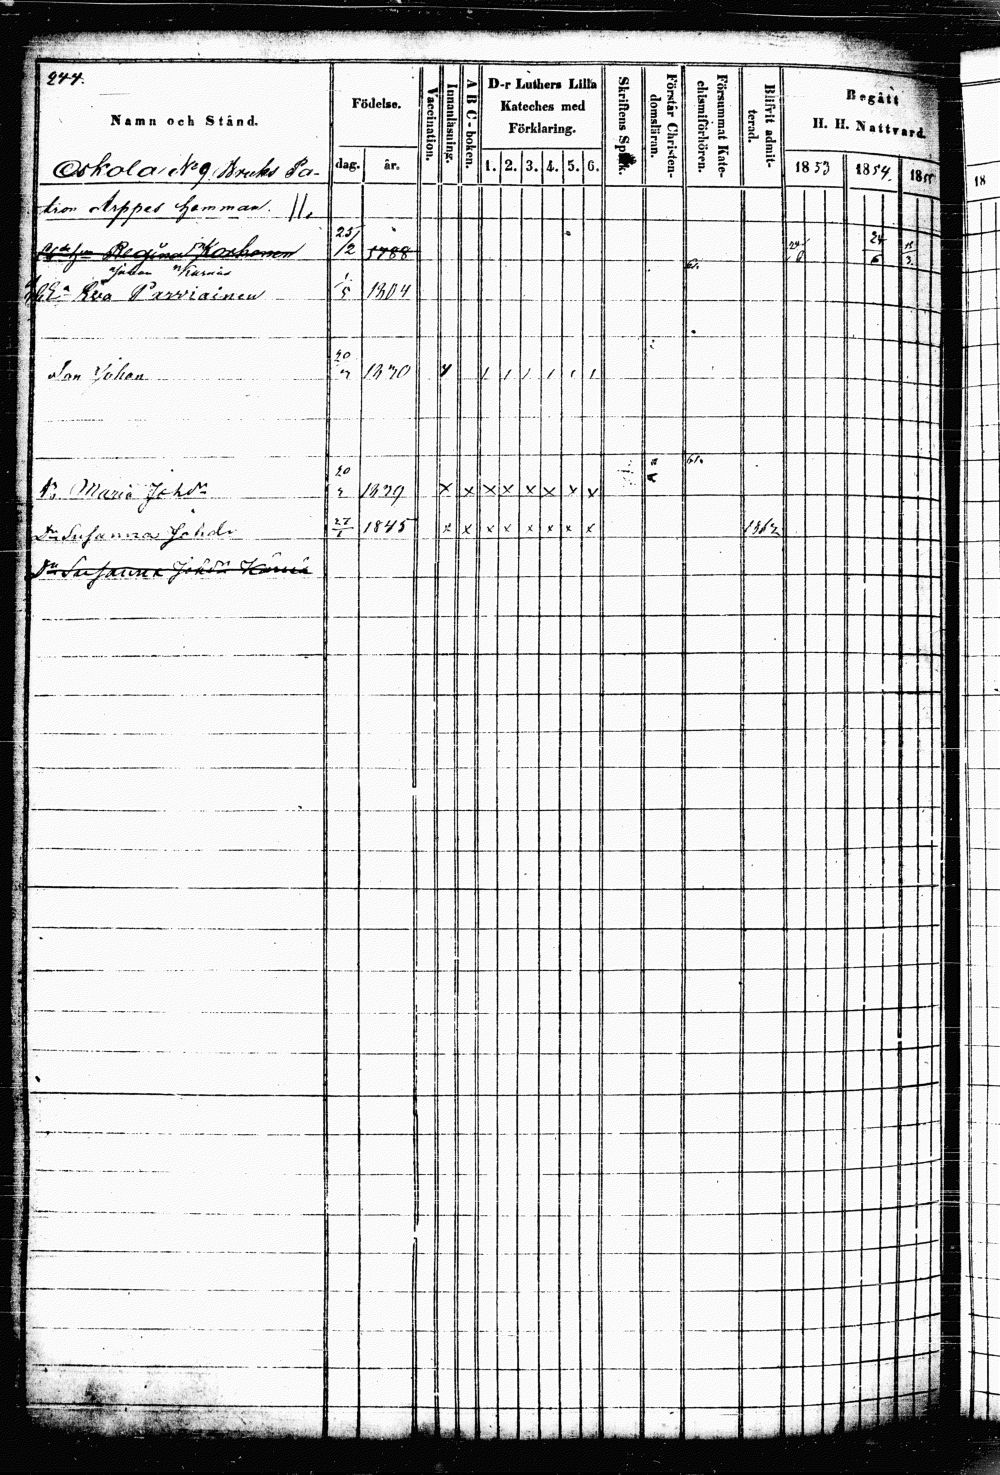 244.
Namn och Stånd.
Födelse.
dag.
år.
Vaccination.
Innanläsning.
A B C-boken.
D-r Luthers Lilla
Kateches med
Förklaring.
1. 2. 3. 4. 5. 6.
Skriftens Språk.
Förstår Christen-
domsläran.
Försummat Kate-
chismiförhören.
Blifvit admit-
terad.
Begått
H. H. Nattvard.
1853 1854. 1855
18
Oskola No 9 Bruks Pa-
tron Arppes hemman. //.
Regina Korhonen 25/2 1788 24/6
Johan Karnäs
Eva Parviainen 1/5 1804 61.
Son Johan 20 1830
Maria Johdr 20 1839 x x x x x x x x 61.
Dr Susanna Johdr 1845 x x x x x x x x 1862
Dr Susanna Johdr